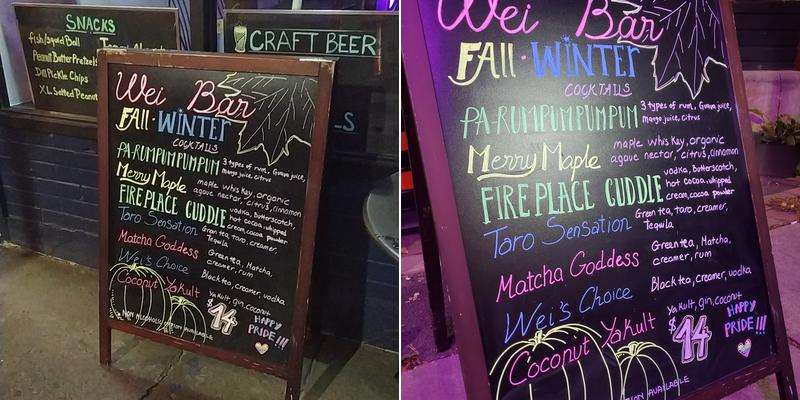 SNACKS
fish/squid Ball
Peanut Butter Pretzels
Dill Pickle Chips
XL Salted Peanut
CRAFT BEER
Wei Bar
FAll · WiNTER
COCKTAILS
PA-RUMPUMPUMPUM 3 types of rum, Guava juice,
mango juice, citrus
Merry Maple maple whiskey, organic
agave nectar, citrus, cinnamon
FIREPLACE CUDDIE vodka, butterscotch,
hot cocoa, whipped
cream, cocoa powder
Taro Sensation Green tea, taro, creamer,
Tequila
Matcha Goddess Green tea, Matcha,
creamer, rum
Wei's Choice Black tea, creamer, vodka
Coconut Yakult Yakult, gin, coconut
$14
HAPPY
PRIDE!!!
NON ALCOHOLIC OPTION AVAILABLE
Wei Bar
FAll · WiNTER
COCKTAILS
PA-RUMPUMPUMPUM 3 types of rum, Guava juice,
mango juice, citrus
Merry Maple maple whiskey, organic
agave nectar, citrus, cinnamon
FIREPLACE CUDDIE vodka, butterscotch,
hot cocoa, whipped
cream, cocoa powder
Taro Sensation Green tea, taro, creamer,
Tequila
Matcha Goddess Green tea, Matcha,
creamer, rum
Wei's Choice Black tea, creamer, vodka
Coconut Yakult Yakult, gin, coconut
$14
HAPPY
PRIDE!!!
TION AVAILABLE